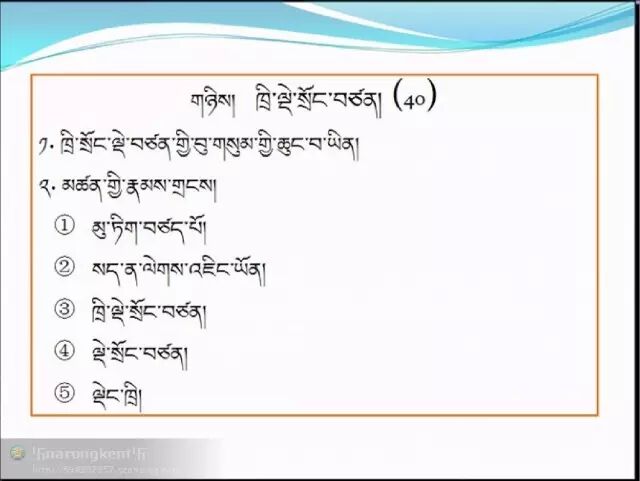 གཉིས། ཁྲི་ལྡེ་སྲོང་བཙན། (40)
༡. ཁྲི་སྲོང་ལྡེ་བཙན་གྱི་བུ་གསུམ་གྱི་ཆུང་བ་ཡིན།
༢. མཚན་གྱི་རྣམས་གྲངས།
① མུ་ཏིག་བཙད་པོ།
② སད་ན་ལེགས་འཇིང་ཡོན།
③ ཁྲི་ལྡེ་སྲོང་བཙན།
④ ལྡེ་སྲོང་བཙན།
⑤ ལྡེང་ཁྲི།
卐narongkent卐